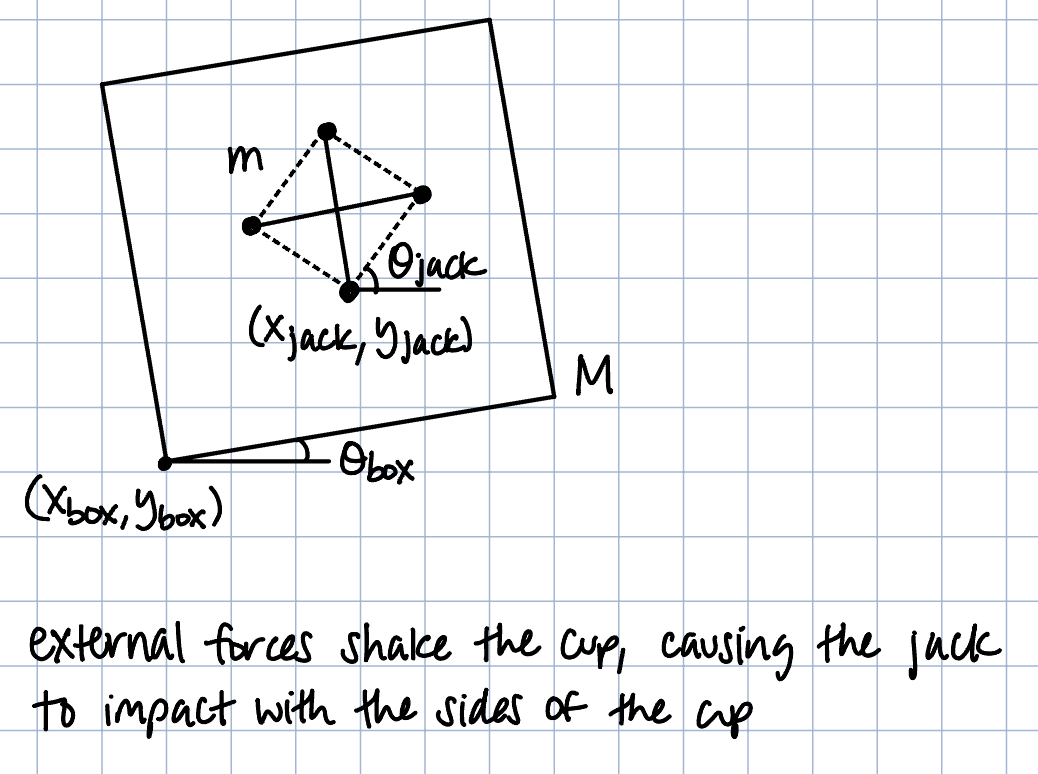 m
θjack
(xjack, yjack)
M
θbox
(xbox, ybox)
external forces shake the cup, causing the jack
to impact with the sides of the cup